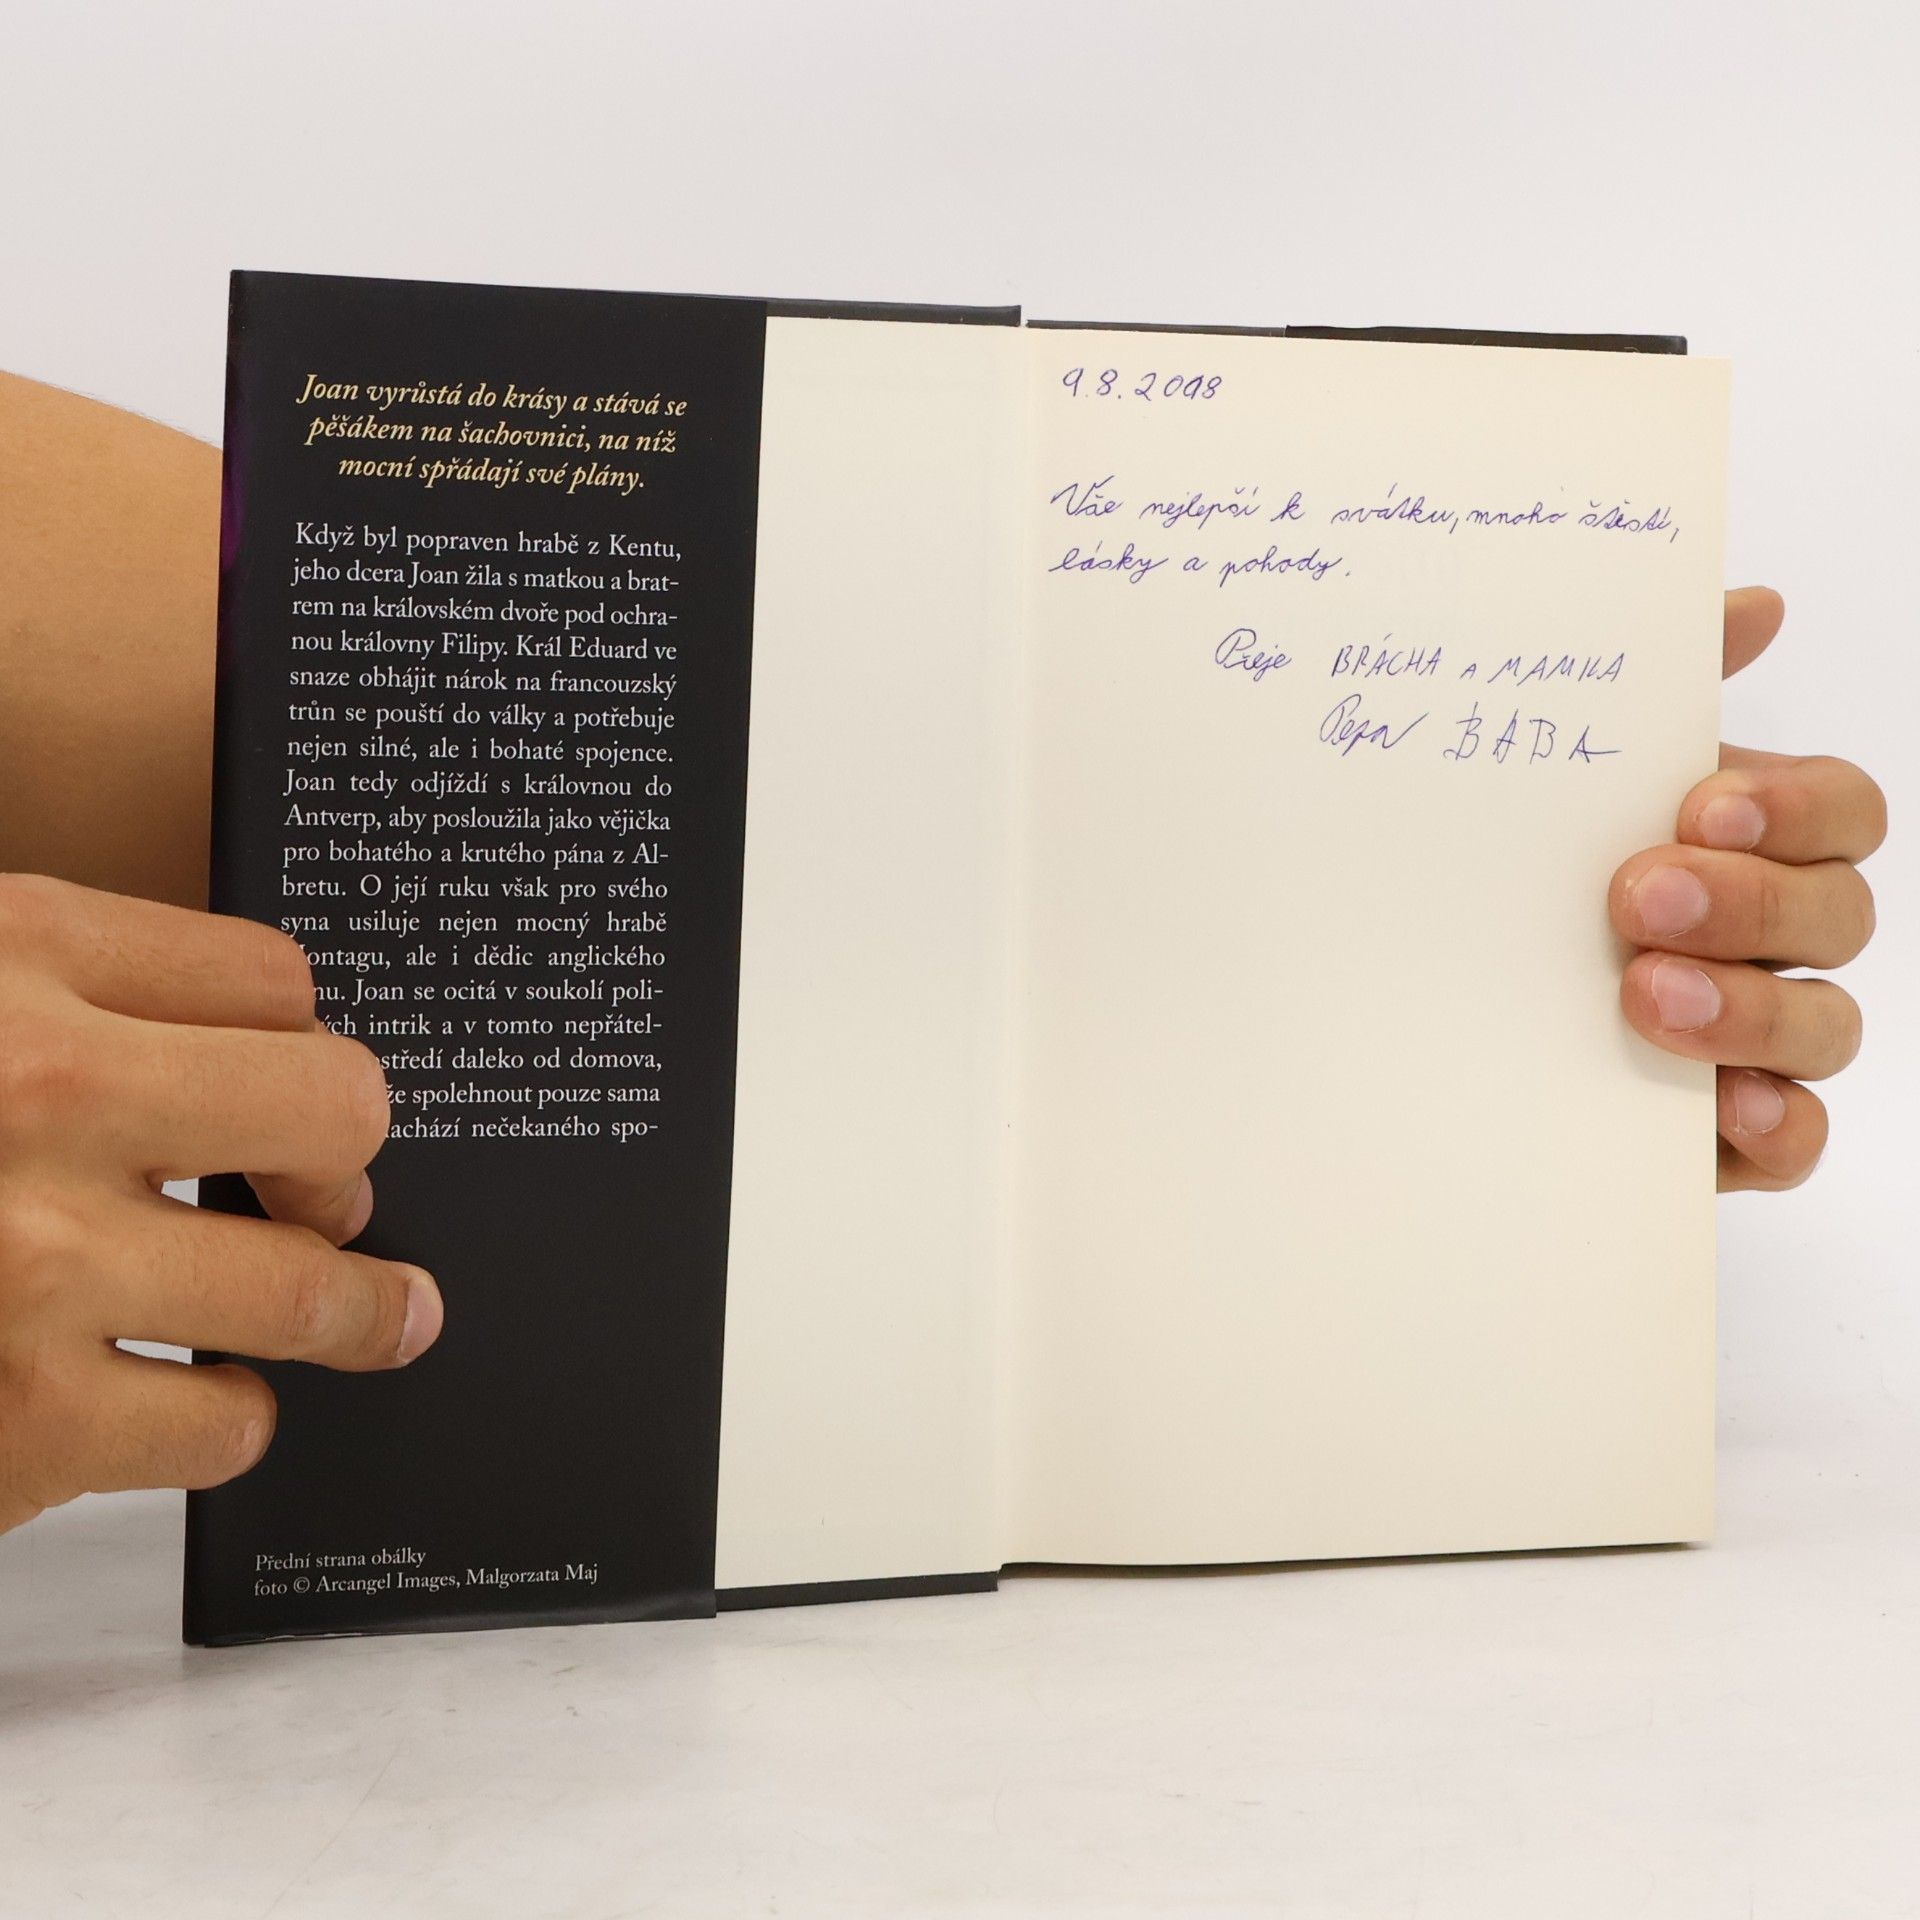 Joan vyrůstá do krásy a stává se
pěšákem na šachovnici, na níž
mocní spřádají své plány.
Když byl popraven hrabě z Kentu,
jeho dcera Joan žila s matkou a brat-
rem na královském dvoře pod ochra-
nou královny Filipy. Král Eduard ve
snaze obhájit nárok na francouzský
trůn se pouští do války a potřebuje
nejen silné, ale i bohaté spojence.
Joan tedy odjíždí s královnou do
Antverp, aby posloužila jako vějička
pro bohatého a krutého pána z Al-
bretu. O její ruku však pro svého
syna usiluje nejen mocný hrabě
ontagu, ale i dědic anglického
nu. Joan se ocitá v soukolí poli-
ých intrik a v tomto nepřátel-
středí daleko od domova,
že spolehnout pouze sama
achází nečekaného spo-
Přední strana obálky
foto © Arcangel Images, Malgorzata Maj
9.8.2018
Vše nejlepší k svátku, mnoho štěstí,
lásky a pohody.
Přeje BRÁCHA A MAMKA
Pepa BABA